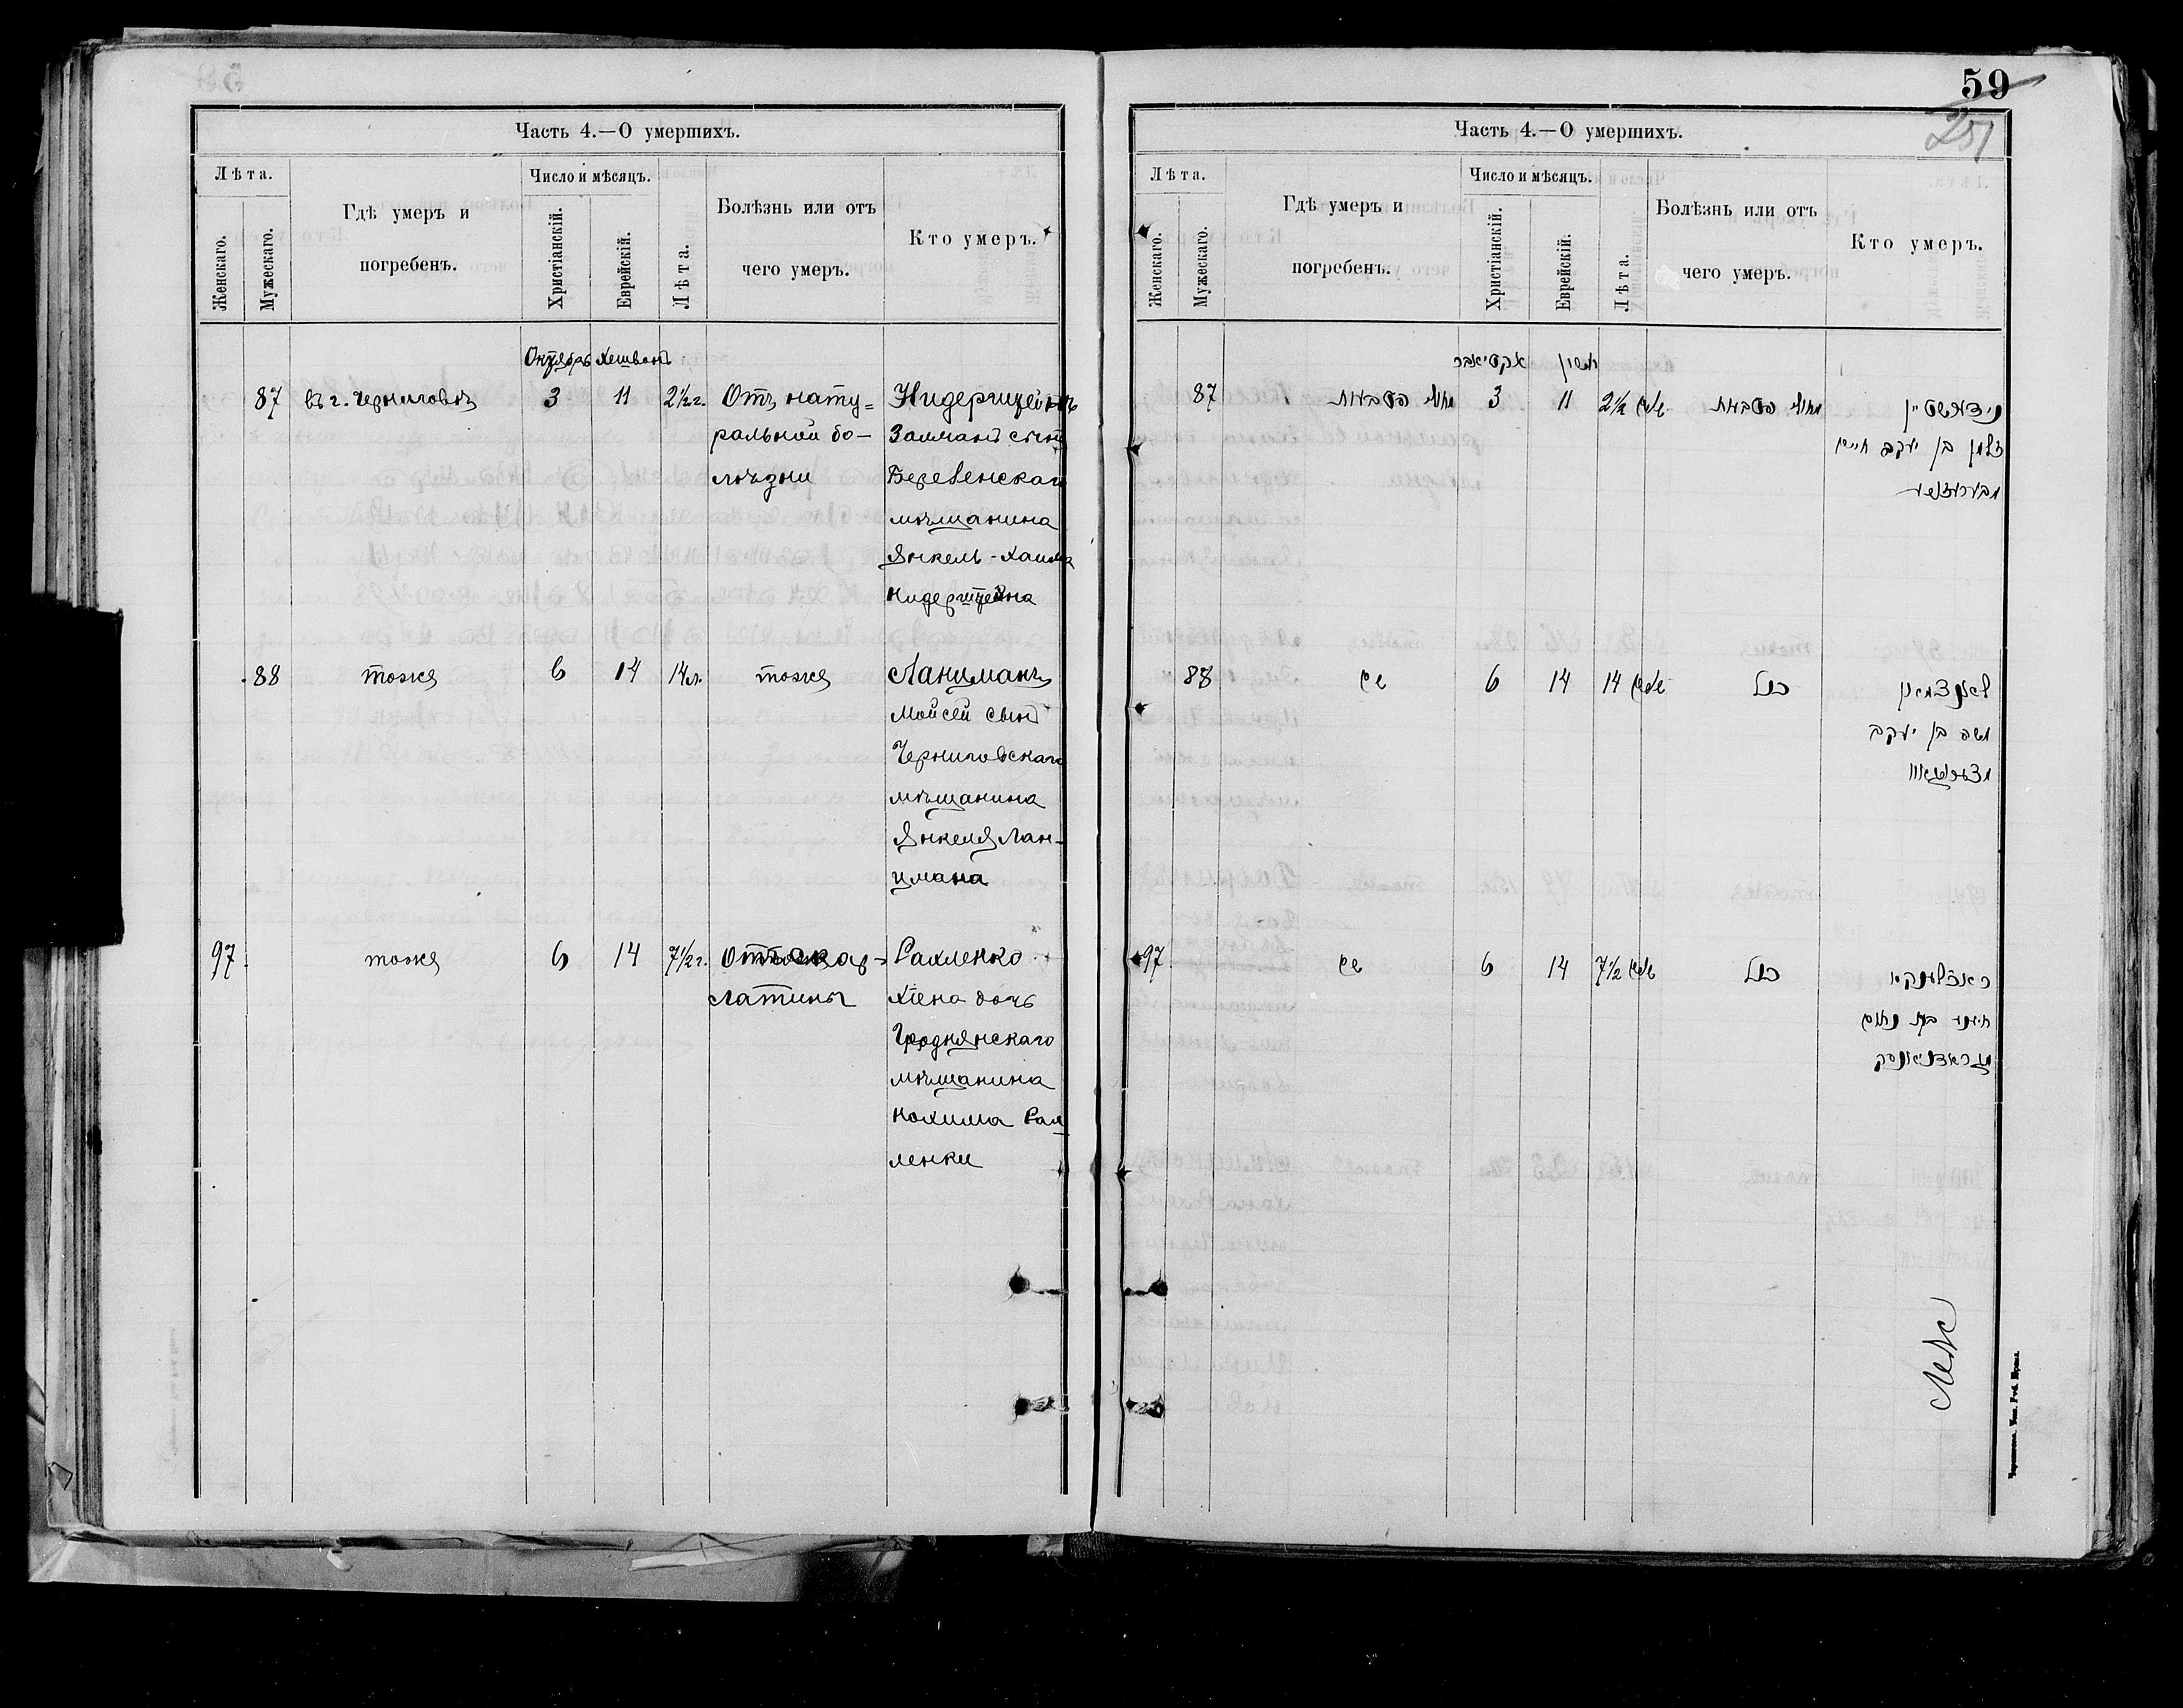 Часть 4.—О умершихъ.
Лѣта.
Женскаго.
Мужескаго.
Гдѣ умеръ и
погребенъ.
Число и мѣсяцъ.
Христіанскій.
Еврейскій.
Лѣта.
Болѣзнь или отъ
чего умеръ.
Кто умеръ.
Октябрь Хешванъ
87 въ г. Черниговѣ 3 11 2½ г. Отъ нату=
ральной бо-
лѣзни
Нидерштейнъ
Залманъ сынъ
Березенскаго
мѣщанина
Янкель-Хаима
Нидерштейна
88 тоже 6 14 14 л. тоже Ланцманъ
Мойсей сынъ
Черниговскаго
мѣщанина
Янкеля Лан-
цмана
97. тоже 6 14 7½ г. Отъ скар-
латины
Рахленко
Хiена дочь
Гроднянскаго
мѣщанина
Нохима Рах
ленки
59
251
Часть 4.—О умершихъ.
Лѣта.
Женскаго.
Мужескаго.
Гдѣ умеръ и
погребенъ.
Число и мѣсяцъ.
Христіанскій.
Еврейскій.
Лѣта.
Болѣзнь или отъ
чего умеръ.
Кто умеръ.
אקטיאבר חשון
87 3 11 2½
זלמן בן יעקב חיים
88 שם 6 14 14 כנל לאנצמאן
משה בן יעקב
97 שם 6 14 7½ כנל
בת נחום